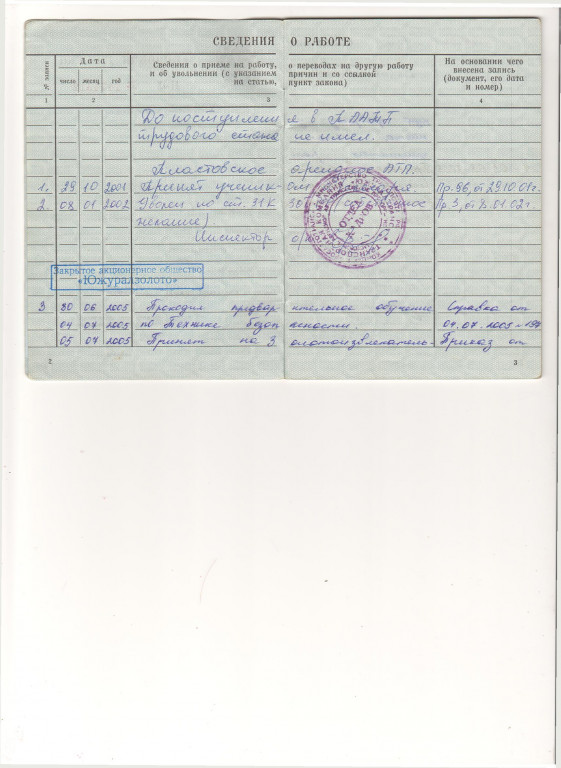 СВЕДЕНИЯ О РАБОТЕ
№ записи
Дата
число месяц год
Сведения о приеме на работу, о переводах на другую работу
и об увольнении (с указанием причин и со ссылкой
на статью, пункт закона)
На основании чего
внесена запись
(документ, его дата
и номер)
1 2 3 4
До поступления в
трудового стажа не имел.
Пластовское АТП.
1. 29 10 2001 Принят учеником Пр. 96, от 29.10.01г.
2. 08 01 2002 Уволен по ст. 31 К Пр 3, от 8.01.02г.
желание)
Инспектор о/к
Закрытое акционерное общество
«Южуралзолото»
3 30 06 2005 Проходил предварительное обучение Справка от
04 07 2005 по Технике безопасности. 04.07.2005
05 07 2005 Принят на Золотоизвлекатель- Приказ от
2
3